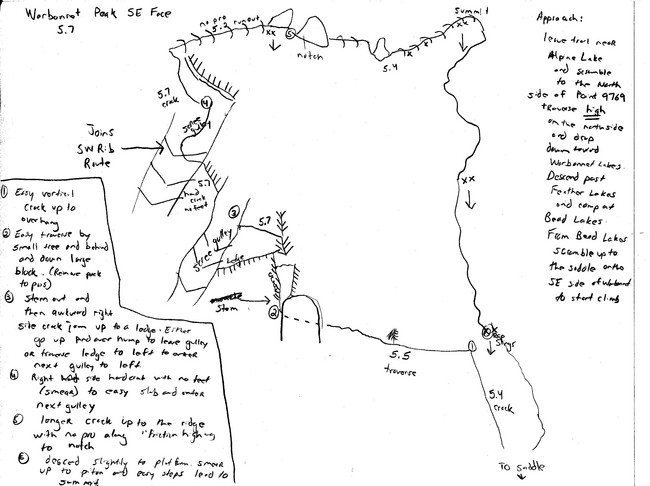 Warbonnet Peak SE Face
5.7
no pro
5.2 runout
xx
5
notch
5.4
x
x
xx
Summit
5.7
crack
4
scree gulley
Joins
SW Rib
Route
5.7
hard
crack
no feet
3
5.7
scree gulley
Ledge
Stem
2
5.5
traverse
1
xx
Rap
Slings
5.4
crack
To saddle
Approach:
leave trail near
Alpine Lake
and scramble
to the North
side of Point 9769
traverse high
on the north side
and drop
down toward
Warbonnet Lakes.
Descend past
Feather Lakes
and camp at
Bead Lakes.
From Bead Lakes
scramble up to
the saddle on the
SE side of Warbonnet
to start climb
1 Easy vertical
crack up to
overhang
2 Easy traverse by
small tree and behind
and down large
block. (Remove pack
to pass)
3 Stem out and
then awkward right
side crack jam up to a ledge. Either
go up and over hump to leave gulley
or traverse ledge to left to enter
next gulley to left
4 Right side hard crack with no feet
(smear) to easy slab and enter
next gulley
5 longer crack up to the ridge
with no pro along "friction highway"
to notch
6 descend slightly to platform. smear
up to piton and easy steps lead to
summit